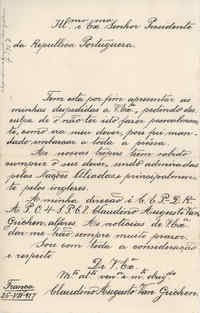 Illmo e Exmo Senhor Presidente
da Republica Portuguesa.
Tem esta por fim apresentar as
minhas despedidas a V Exa, pedindo des-
culpa de o não ter ido fazer pessoalmen-
te, como era meu dever, pois fui man-
dado embarcar a toda a préssa.
As nossas tropas tem sabido
cumprir o seu dever, sendo admiradas
pelas Nações Alliadas e principalmen-
te pelos inglezes.
A minha direcção é C. E. P.
A. P. O. 4 J. P. 6 J. Claudino Augusto Van
Grichen, alferes. As noticias de V Exa
dar-me-hão sempre muito prazer.
Sou com toda a consideração
e respeito
De V. Exa
Claudino Augusto Van Grichen
França